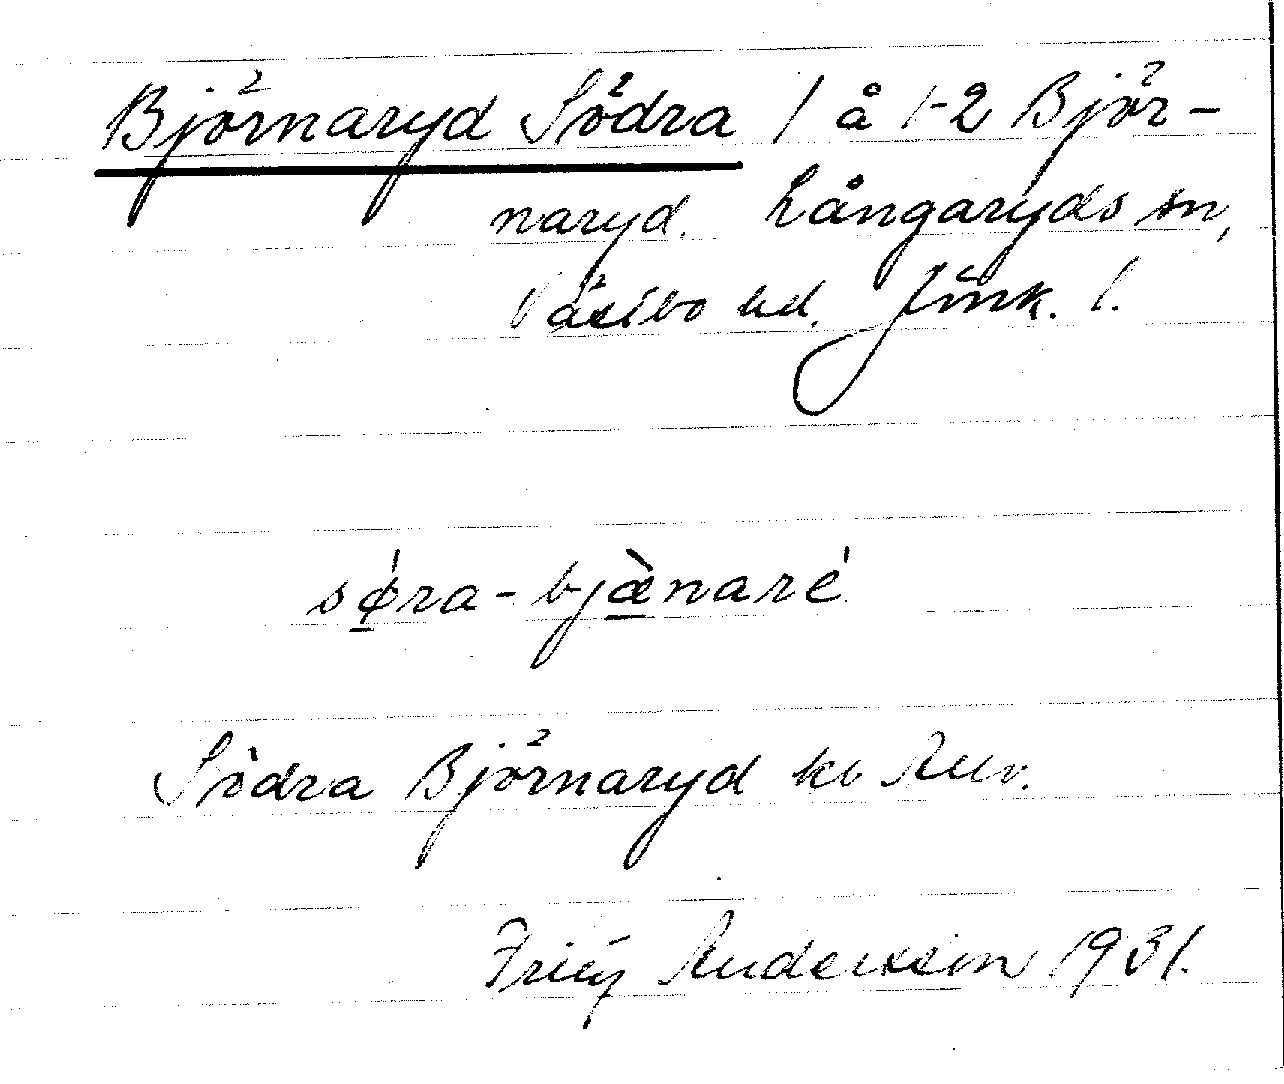 Björnaryd Södra 1 å 1-2 Björ-
naryd. Långaryds sn,
Västbo hd. Jönk. l.
sǿ̲ra-bjæ̲̀naré
Södra Björnaryd kb
Andersson 1931.